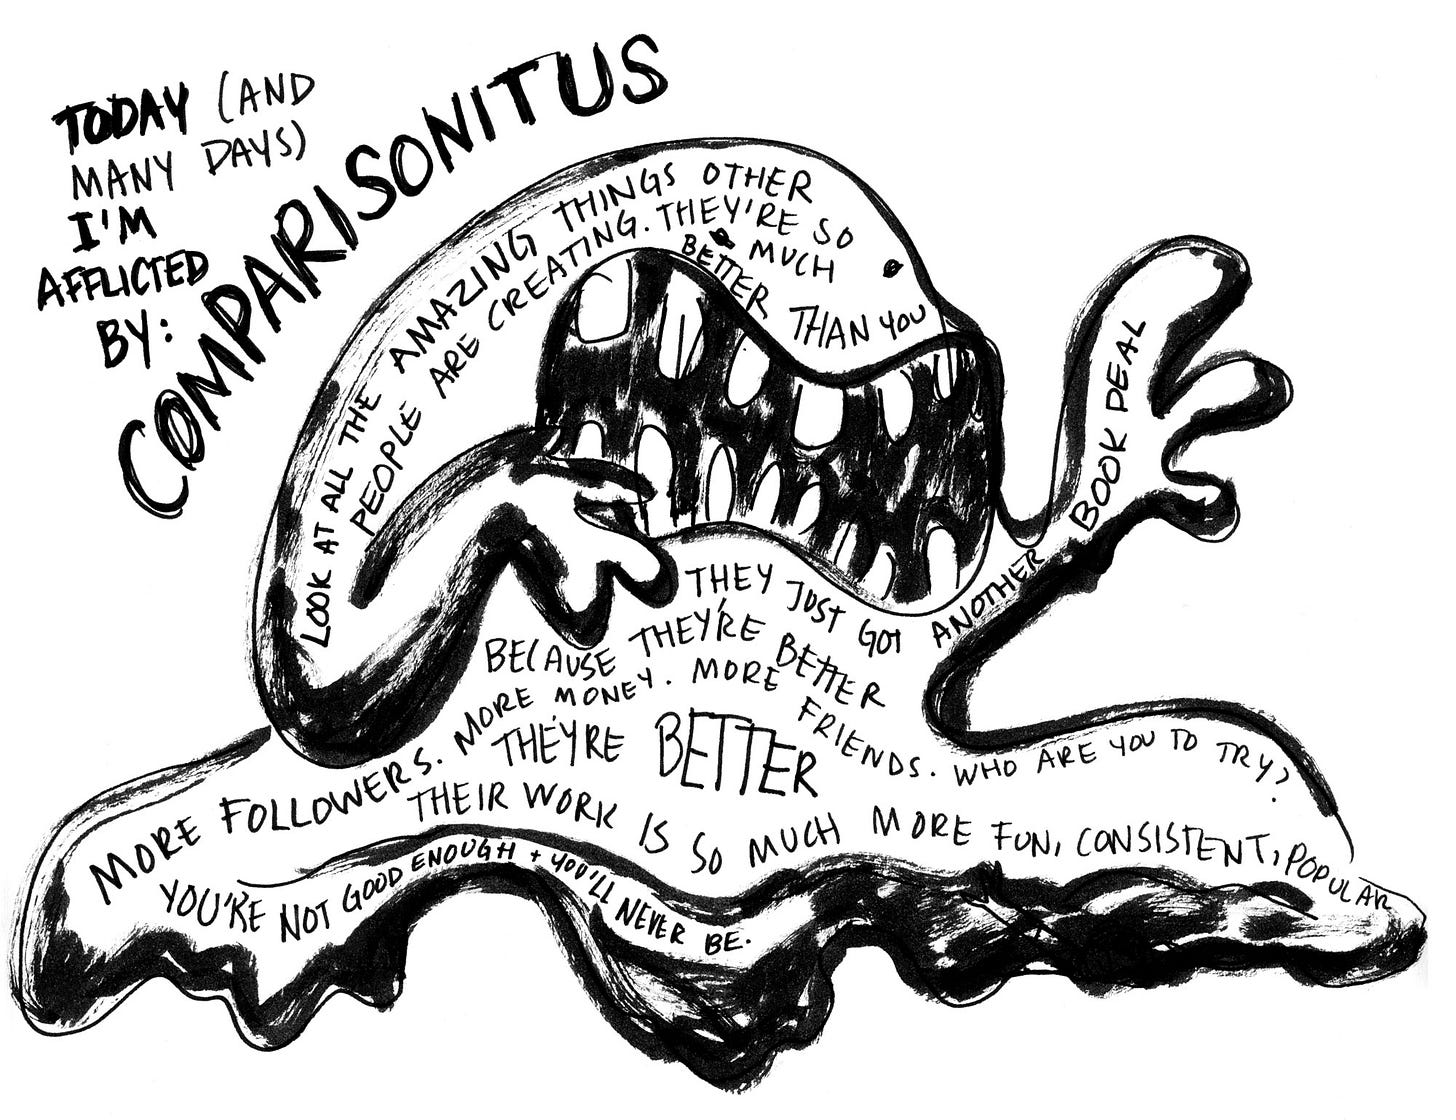 TODAY (AND
MANY DAYS)
I'M
AFFLICTED
BY:
COMPARISONITUS
LOOK AT ALL THE AMAZING THINGS OTHER
PEOPLE ARE CREATING. THEY'RE SO
MUCH
BETTER THAN YOU
THEY JUST GOT ANOTHER BOOK DEAL
BECAUSE THEY'RE BETTER
MORE FOLLOWERS. MORE MONEY. MORE FRIENDS. WHO ARE YOU TO TRY?
THEY'RE BETTER
THEIR WORK IS SO MUCH MORE FUN, CONSISTENT, POPULAR
YOU'RE NOT GOOD ENOUGH + YOU'LL NEVER BE.